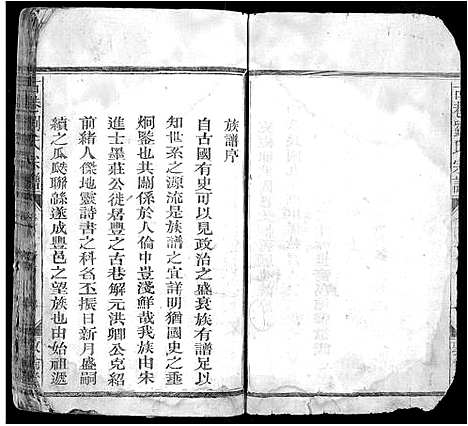 族譜序
自古國有史可以見政治之盛衰族有譜足以
知世系之源流是族譜之宜詳明猶國史之垂
炯鑒也其關係於人倫中豈淺鮮哉我族由朱
進士墨莊公徙居豐之古巷解元洪卿公克紹
前緒人傑地靈詩書之科名丕振日新月盛嗣
續之瓜瓞聯緜遂成豐邑之望族也由始祖遞
古巷劉氏宗譜
古巷劉氏宗譜